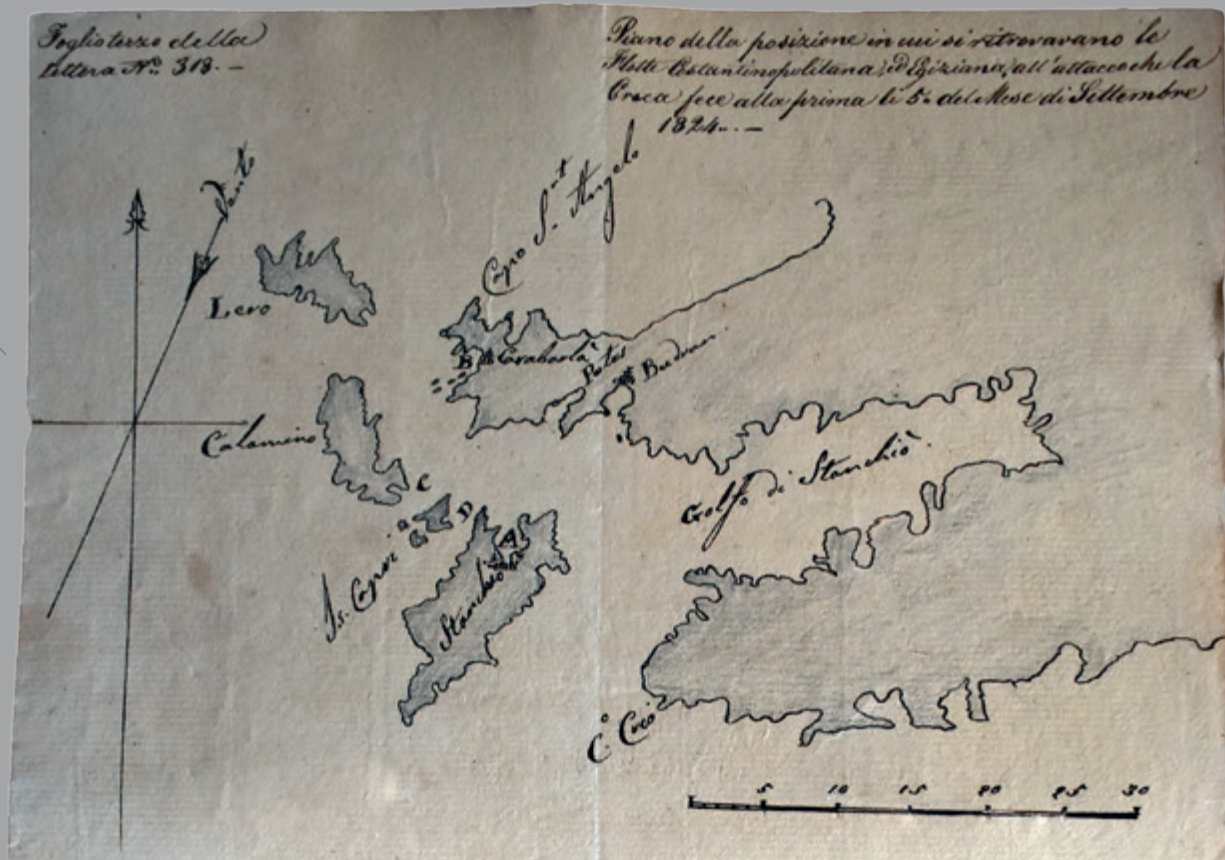 Foglio terzo della
lettera Nº 313. -
Piano della posizione in cui si ritrovavano le
Flotte Costantinopolitana, ed Egiziana, all'attacco che la
Greca fece alla prima li 5. del Mese di Settembre
1824.. -
Vento
Capo S.nt Angelo
Lero
B
Carabaglà
Budrun
Calamino
Golfo di Stanchiò
C
D
G
A
Is. Capri
Stanchiò
C.º Criò
5 10 15 20 25 30